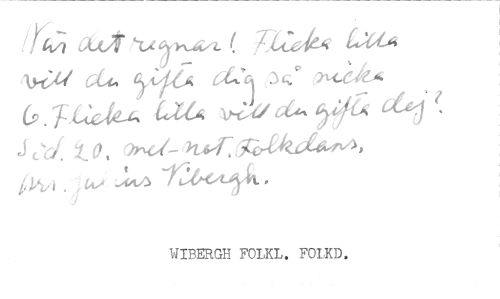 När det regnar! Flicka lilla
vill du gifta dig så nicka
6. Flicka lilla vill du gifta dej?
Sid. 20. mel-not. Folkdans,
Arr. Julius Vibergh.
WIBERGH FOLKL. FOLKD.